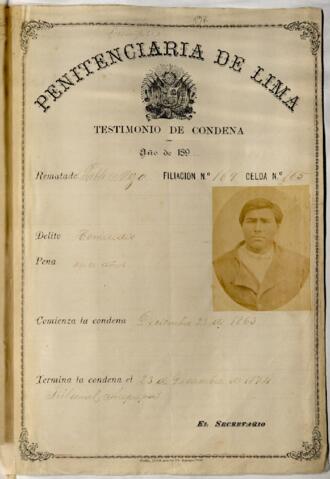 PENITENCIARIA DE LIMA
TESTIMONIO DE CONDENA
Año de 189
Rematado FILIACION N.º 169 CELDA N.º 165
Delito Homicidio
Pena once años
Comienza la condena Diciembre 23 de 1863
Termina la condena el 23 de Diciembre de 1874
Tribunal, Arequipa
EL SECRETARIO